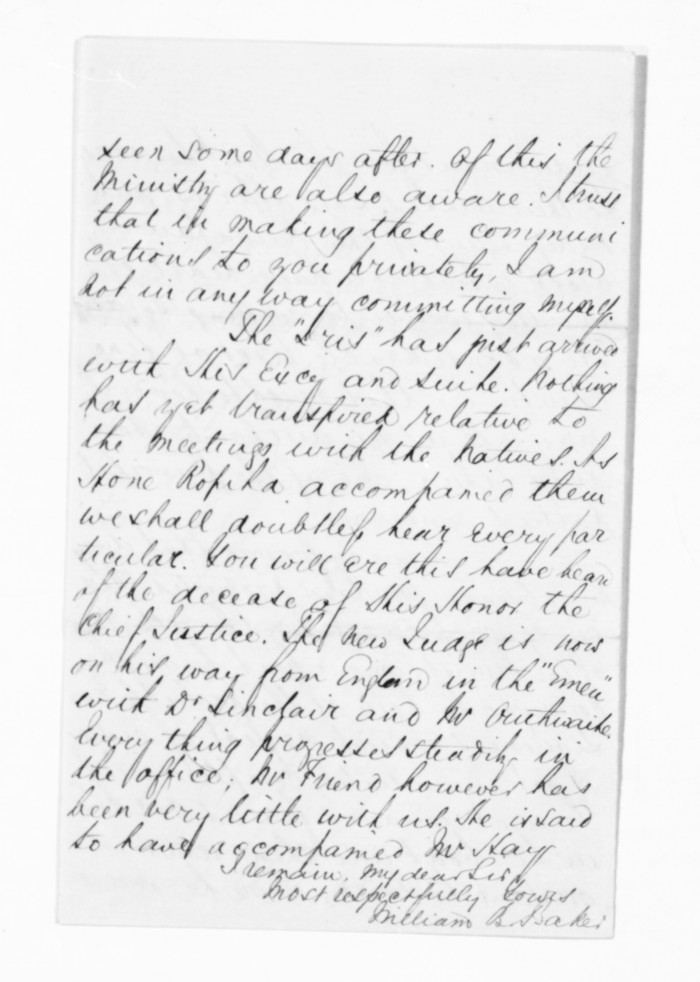 seen some days after. Of this the
Ministry are also aware. I trust
that in making these communi
cations to you privately, I am
not in any way committing myself.
The "Iris" has just arrived
with His Excy and suite. Nothing
has yet transpired relative to
the meetings with the Natives. As
Hone Ropiha accompanied them
we shall doubtless hear every par
ticular. You will ere this have hear
of the decease of His Honor the
Chief Justice. The New Judge is now
on his way from England in the "Emeu"
with Dr Sinclair and Mr Outhwaite.
Everything progresses steadily in
the office; Mr Friend however has
been very little with us. He is said
to have accompanied Mr Hay
I remain, My dear Sir,
Most respectfully Yours
William B. Baker